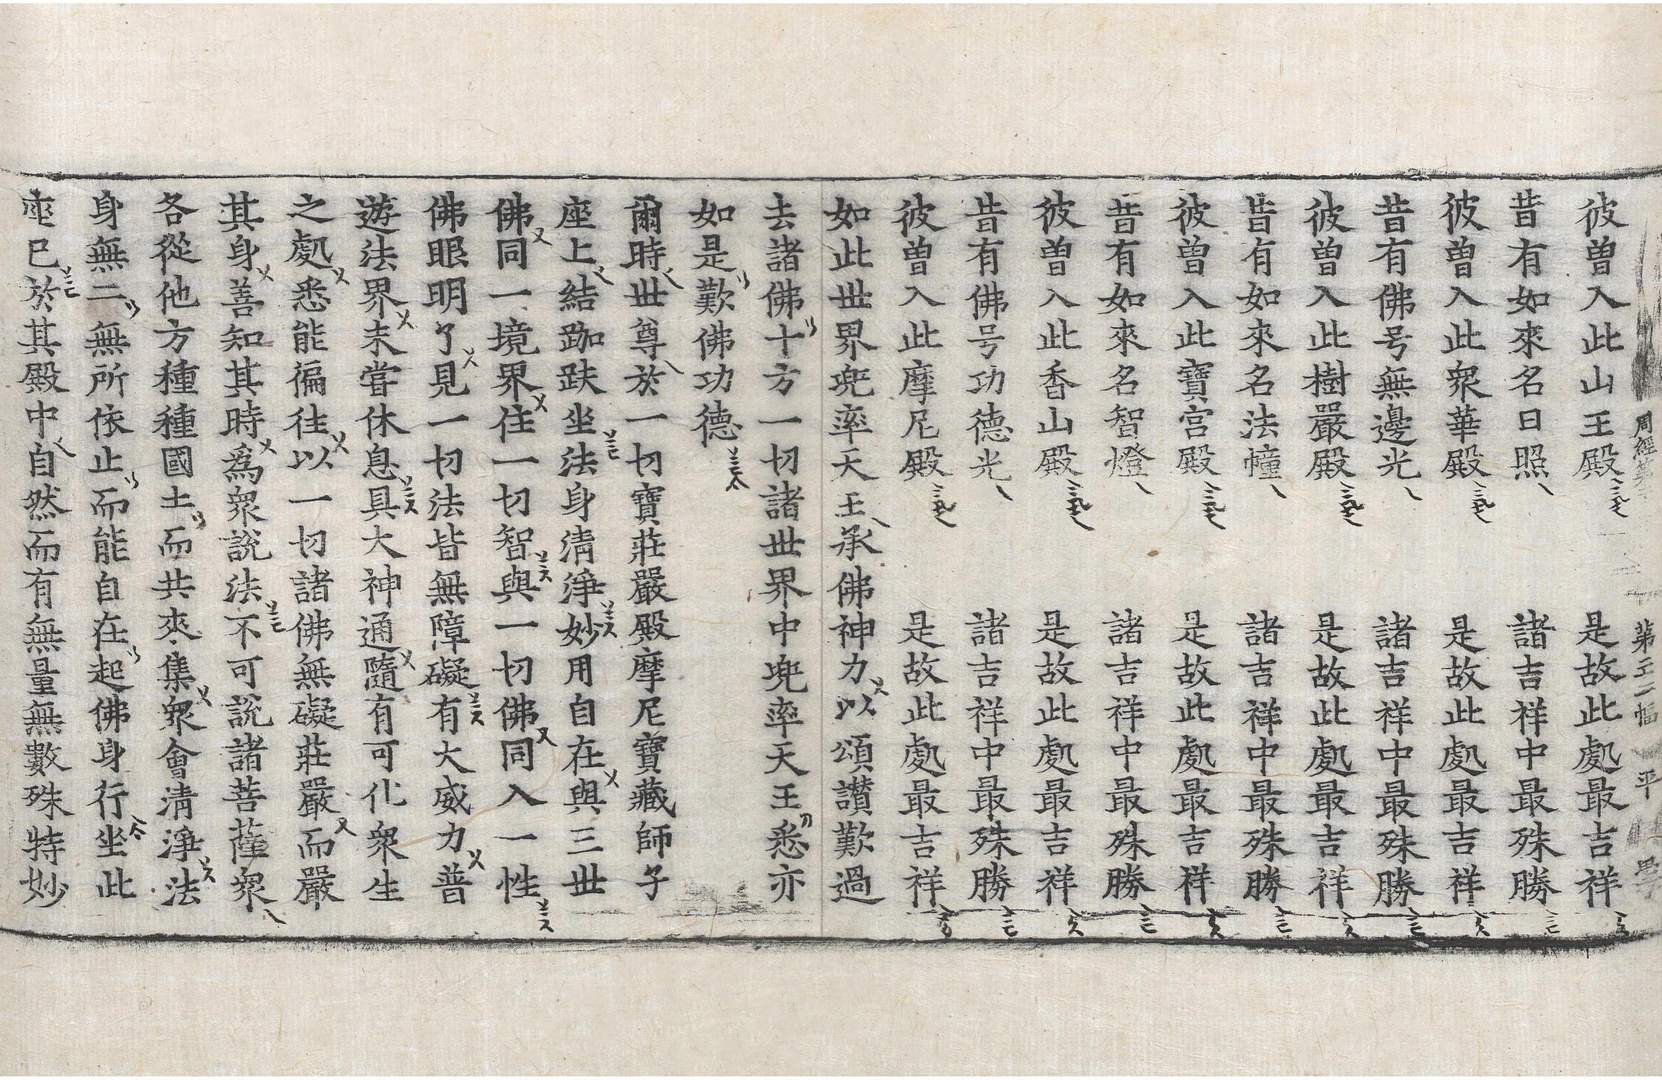 彼曽入此山王殿 是故此處最吉祥
昔有如來名日照 諸吉祥中最殊勝
彼曽入此衆華殿 是故此處最吉祥
昔有佛号無邊光 諸吉祥中最殊勝
彼曽入此樹嚴殿 是故此處最吉祥
昔有如來名法幢 諸吉祥中最殊勝
彼曽入此寶宮殿 是故此處最吉祥
昔有如來名智燈 諸吉祥中最殊勝
彼曽入此香山殿 是故此處最吉祥
昔有佛号功德光 諸吉祥中最殊勝
彼曽入此摩尼殿 是故此處最吉祥
如此世界兜率天王承佛神力以頌讃歎過
去諸佛十方一切諸世界中兜率天王悉亦
如是歎佛功德
爾時世尊於一切寶莊嚴殿摩尼寶藏師子
座上結跏趺坐法身清淨妙用自在與三世
佛同一境界住一切智與一切佛同入一性
佛眼明了見一切法皆無障礙有大威力普
遊法界未嘗休息具大神通隨有可化衆生
之處悉能徧往以一切諸佛無礙莊嚴而嚴
其身善知其時爲衆說法不可說諸菩薩衆
各從他方種種國土而共來集衆會清淨法
身無二無所依止而能自在起佛身行坐此
座已於其殿中自然而有無量無數殊特妙